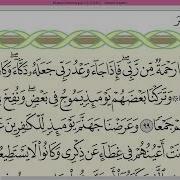 رَحْمَةٌ مِّن رَّبِّى ۖ فَإِذَا جَآءَ وَعْدُ رَبِّى جَعَلَهُۥ دَكَّآءَ ۖ وَكَا
وَتَرَكْنَا بَعْضَهُمْ يَوْمَئِذٍ يَمُوجُ فِى بَعْضٍ ۖ وَنُفِخَ فِى
جَمْعًا ٩٩ وَعَرَضْنَا جَهَنَّمَ يَوْمَئِذٍ لِّلْكَٰفِرِينَ
نَتْ أَعْيُنُهُمْ فِى غِطَآءٍ عَن ذِكْرِى وَكَانُوا۟ لَا يَسْتَطِيعُ